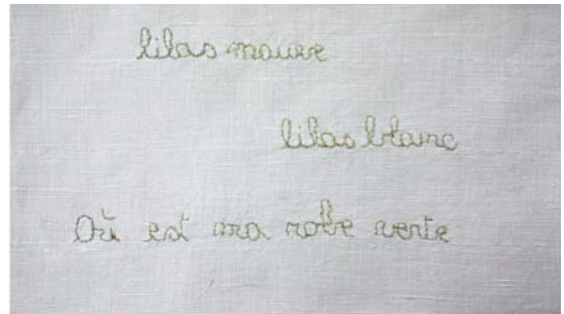 lilas mauve
lilas blanc
Où est ma robe verte